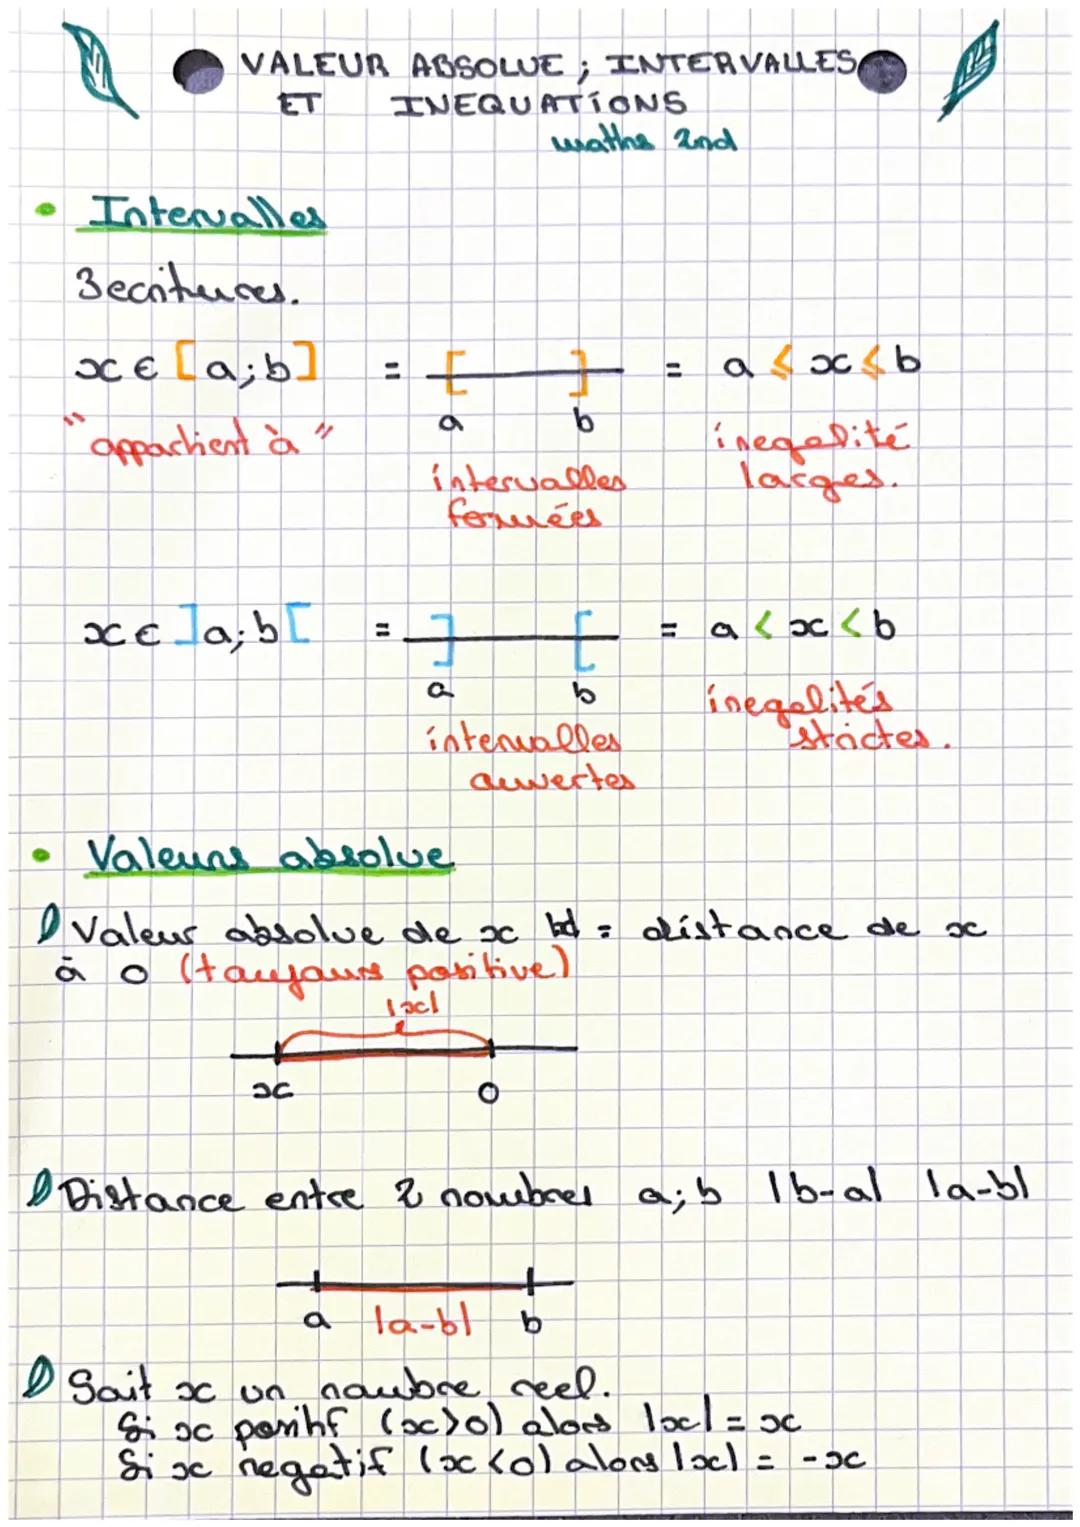 VALEUR ABSOLUE ; INTERVALLES
ET INEQUATIONS
maths 2nd
• Intervalles
3 ecritures.
x ∈ [a;b] = [ ] = a ≤ x ≤ b
a b
"appartient à" inegalité
intervalles larges.
fermées
x ∈ ]a;b[ = ] [ = a < x < b
a b
inegalités
intervalles strictes.
ouvertes
• Valeurs absolue
Valeur absolue de x |x| = distance de x
à 0 (toujours positive)
|x|
x 0
Distance entre 2 nombres a;b |b-a| |a-b|
a |a-b| b
Soit x un nombre reel.
Si x positif (x>0) alors |x| = x
Si x negatif (x<0) alors |x| = -x